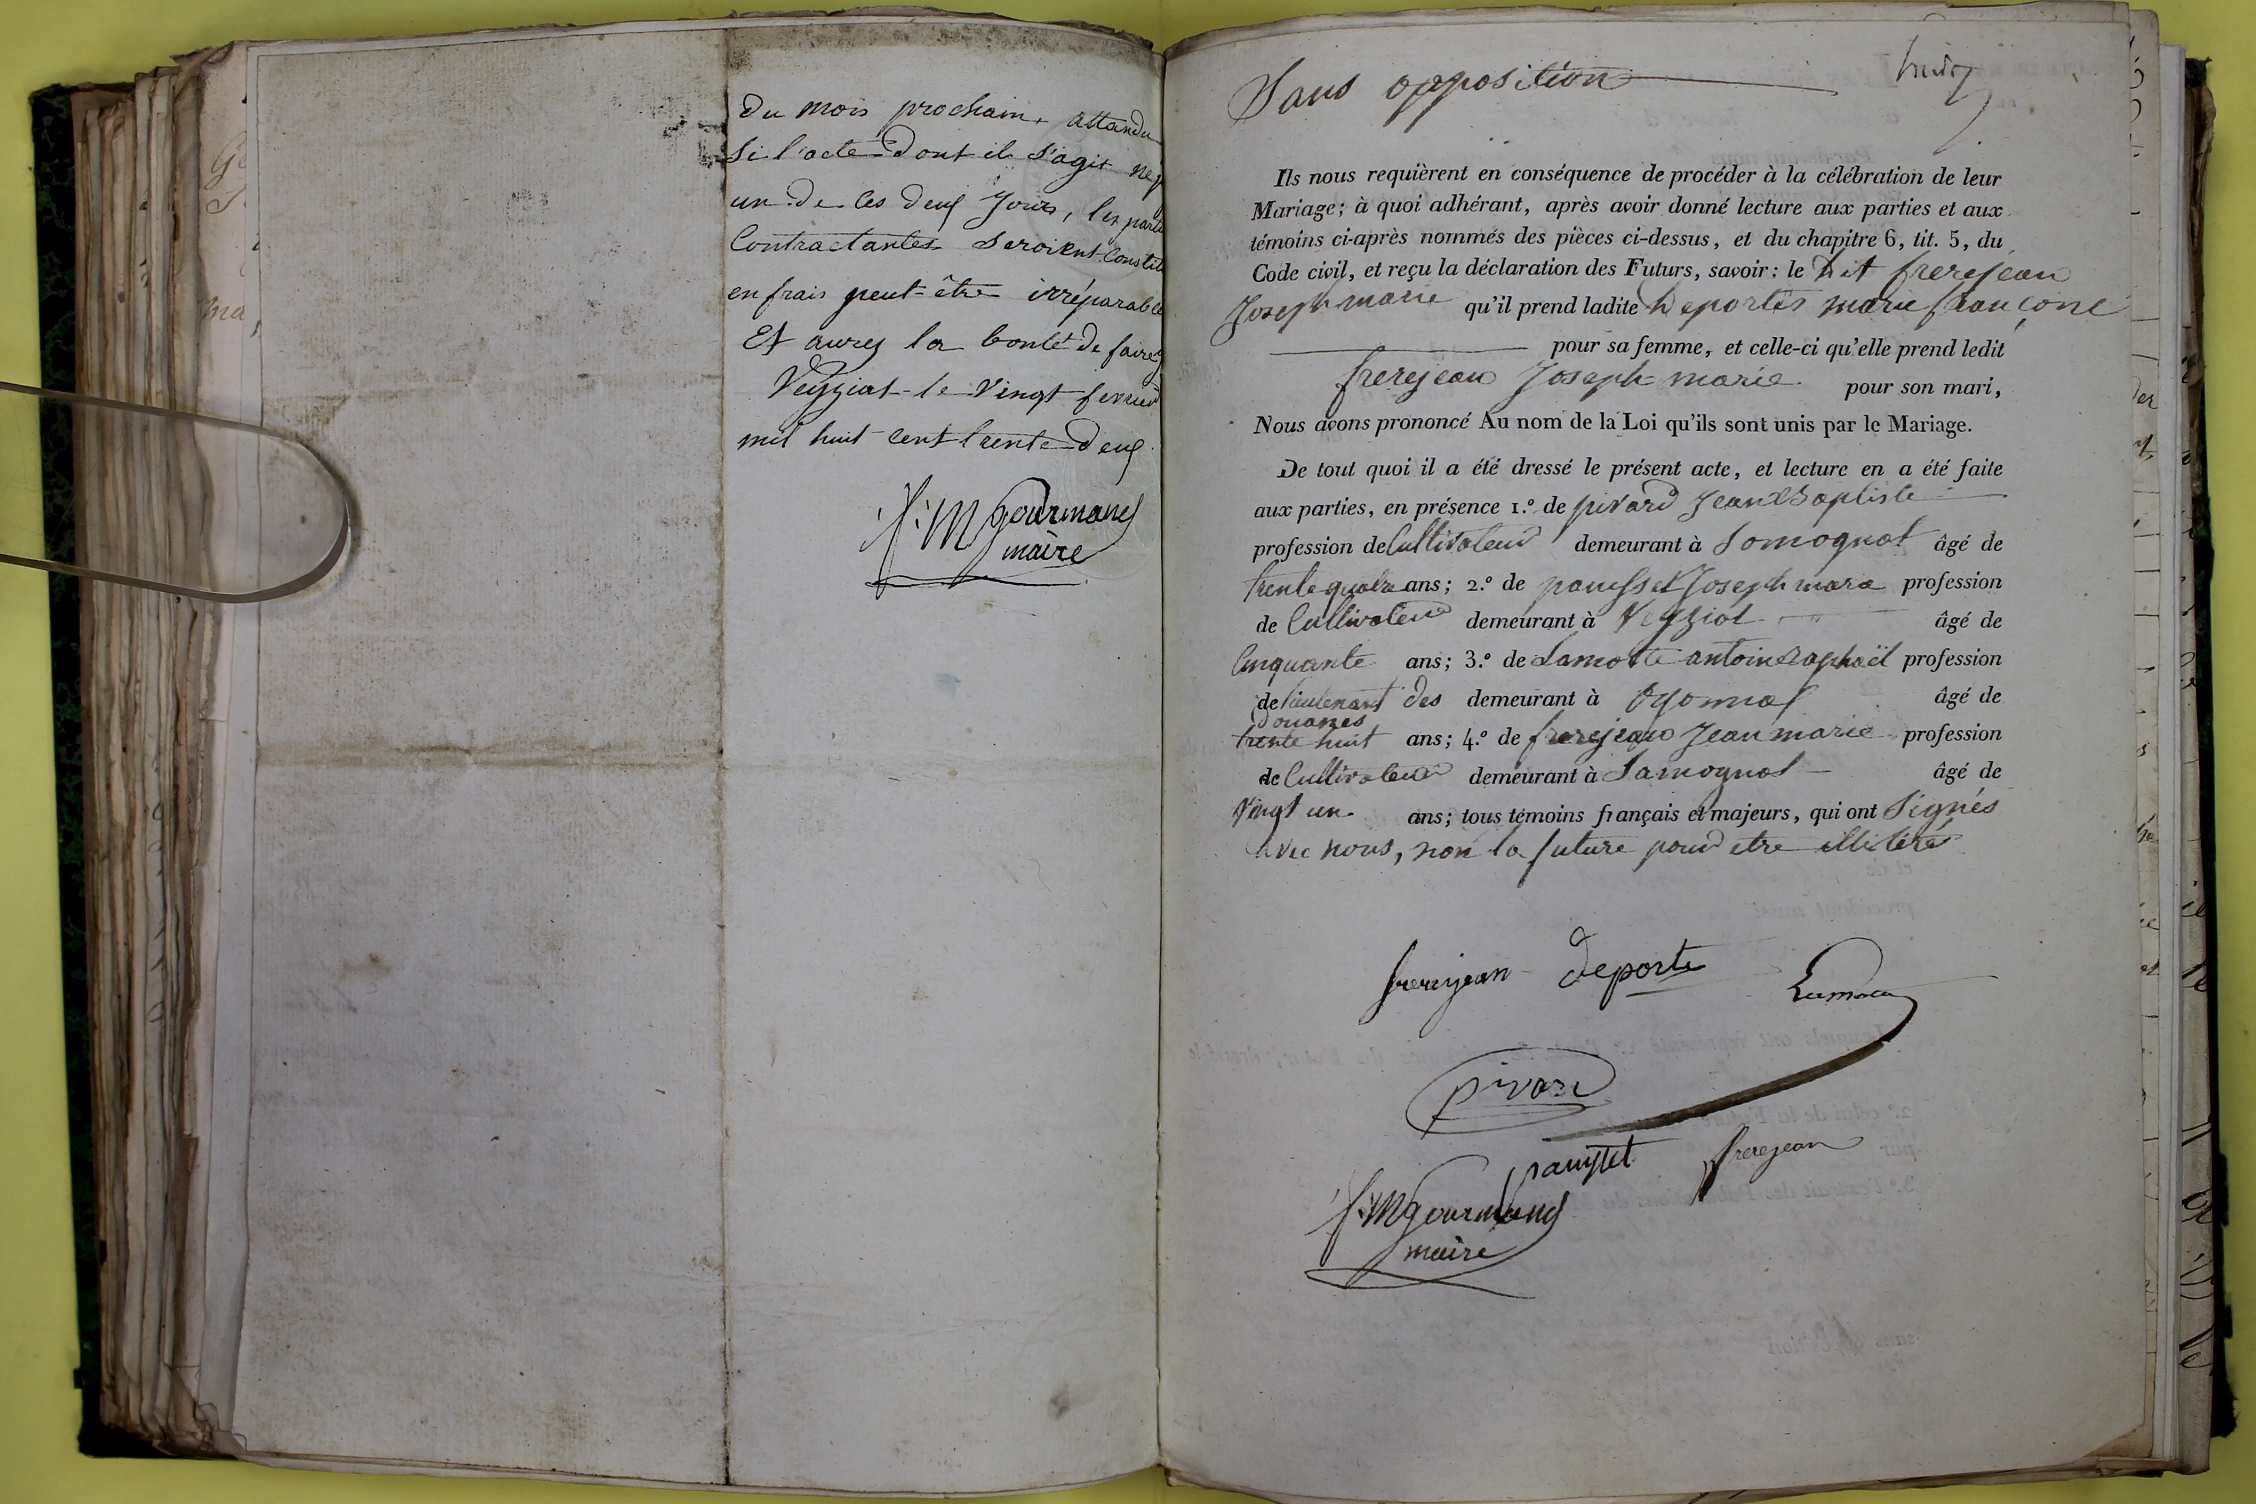 Du mois prochain, attandu
Si l'acte dont il s'agit
un de ces deux Jours, les
Contractantes seroient
en frais peut-être irréparable
Et aurez la bonté de faire
Veyziat le Vingt fevrier
mil huit cent trente deux
J. M Gourmand
maire
Sans opposition
Ils nous requièrent en conséquence de procéder à la célébration de leur
Mariage; à quoi adhérant, après avoir donné lecture aux parties et aux
témoins ci-après nommés des pièces ci-dessus, et du chapitre 6, tit. 5, du
Code civil, et reçu la déclaration des Futurs, savoir: le dit frerejean
Joseph marie qu'il prend ladite Deportes marie françoise
pour sa femme, et celle-ci qu'elle prend ledit
frerejean Joseph marie pour son mari,
Nous avons prononcé Au nom de la Loi qu'ils sont unis par le Mariage.
De tout quoi il a été dressé le présent acte, et lecture en a été faite
aux parties, en présence 1.º de pivard Jean Baptiste
profession de Cultivateur demeurant à Somognat âgé de
trente quatre ans; 2.º de pauysset Joseph marie profession
de Cultivateur demeurant à Veyziat âgé de
Cinquante ans; 3.º de Lamotte antoine raphaël profession
de lieutenant des demeurant à Oyonnax âgé de
Douanes
trente huit ans; 4.º de frerejean Jean marie profession
de Cultivateur demeurant à Samognat âgé de
Vingt un ans; tous témoins français et majeurs, qui ont Signés
avec nous, non la future pour etre illiteré
frerejean Deporte Lamotte
pivard
pauystet frerejean
J. M Gourmand
maire